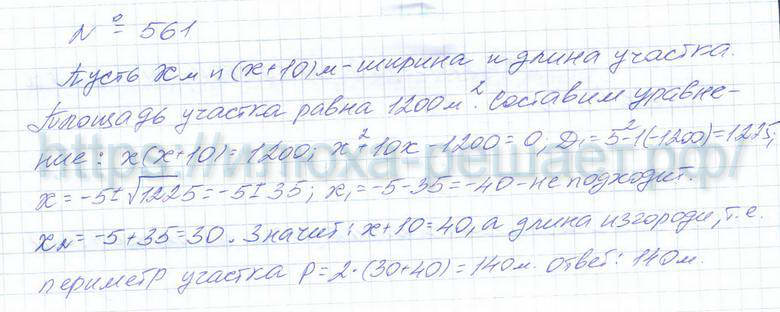 № 561
Пусть x м и (x+10) м - ширина и длина участка.
Площадь участка равна 1200 м². Составим уравне-
ние: x(x+10)=1200; x²+10x-1200=0, D₁=5²-1(-1200)=1225,
x=-5±√1225=-5±35; x₁=-5-35=-40-не подходит.
x₂=-5+35=30. Значит: x+10=40, а длина изгороди, т.е.
периметр участка P=2·(30+40)=140 м. ответ: 140 м.